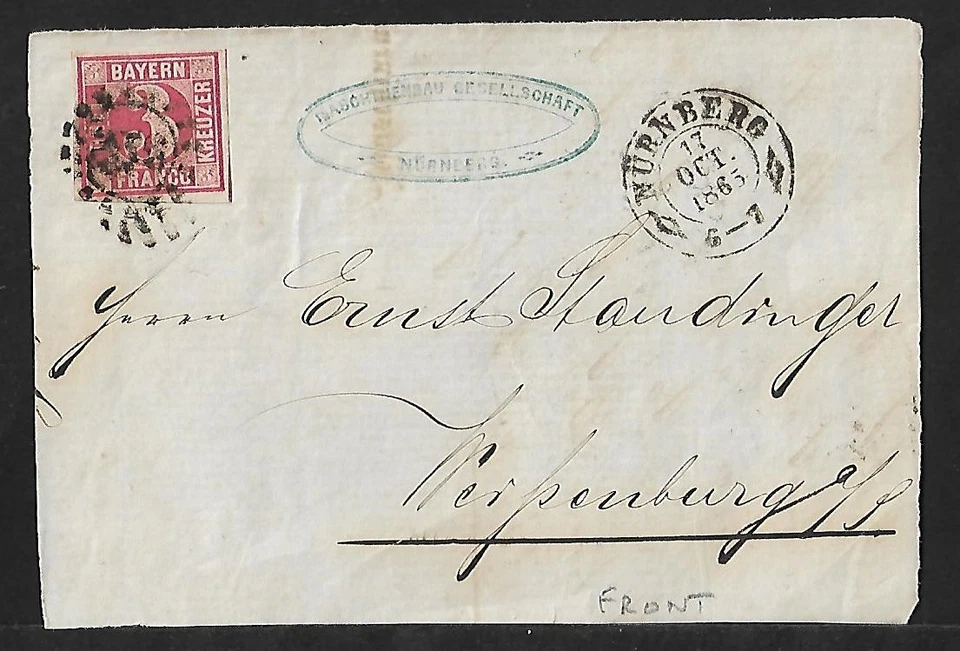 BAYERN
3
KREUZER
FRANCO
MASCHINENBAU GESELLSCHAFT
NÜRNBERG.
NÜRNBERG
17
OCT.
1865
6-7
Herrn Ernst Staudinger
Weißenburg a/S
FRONT